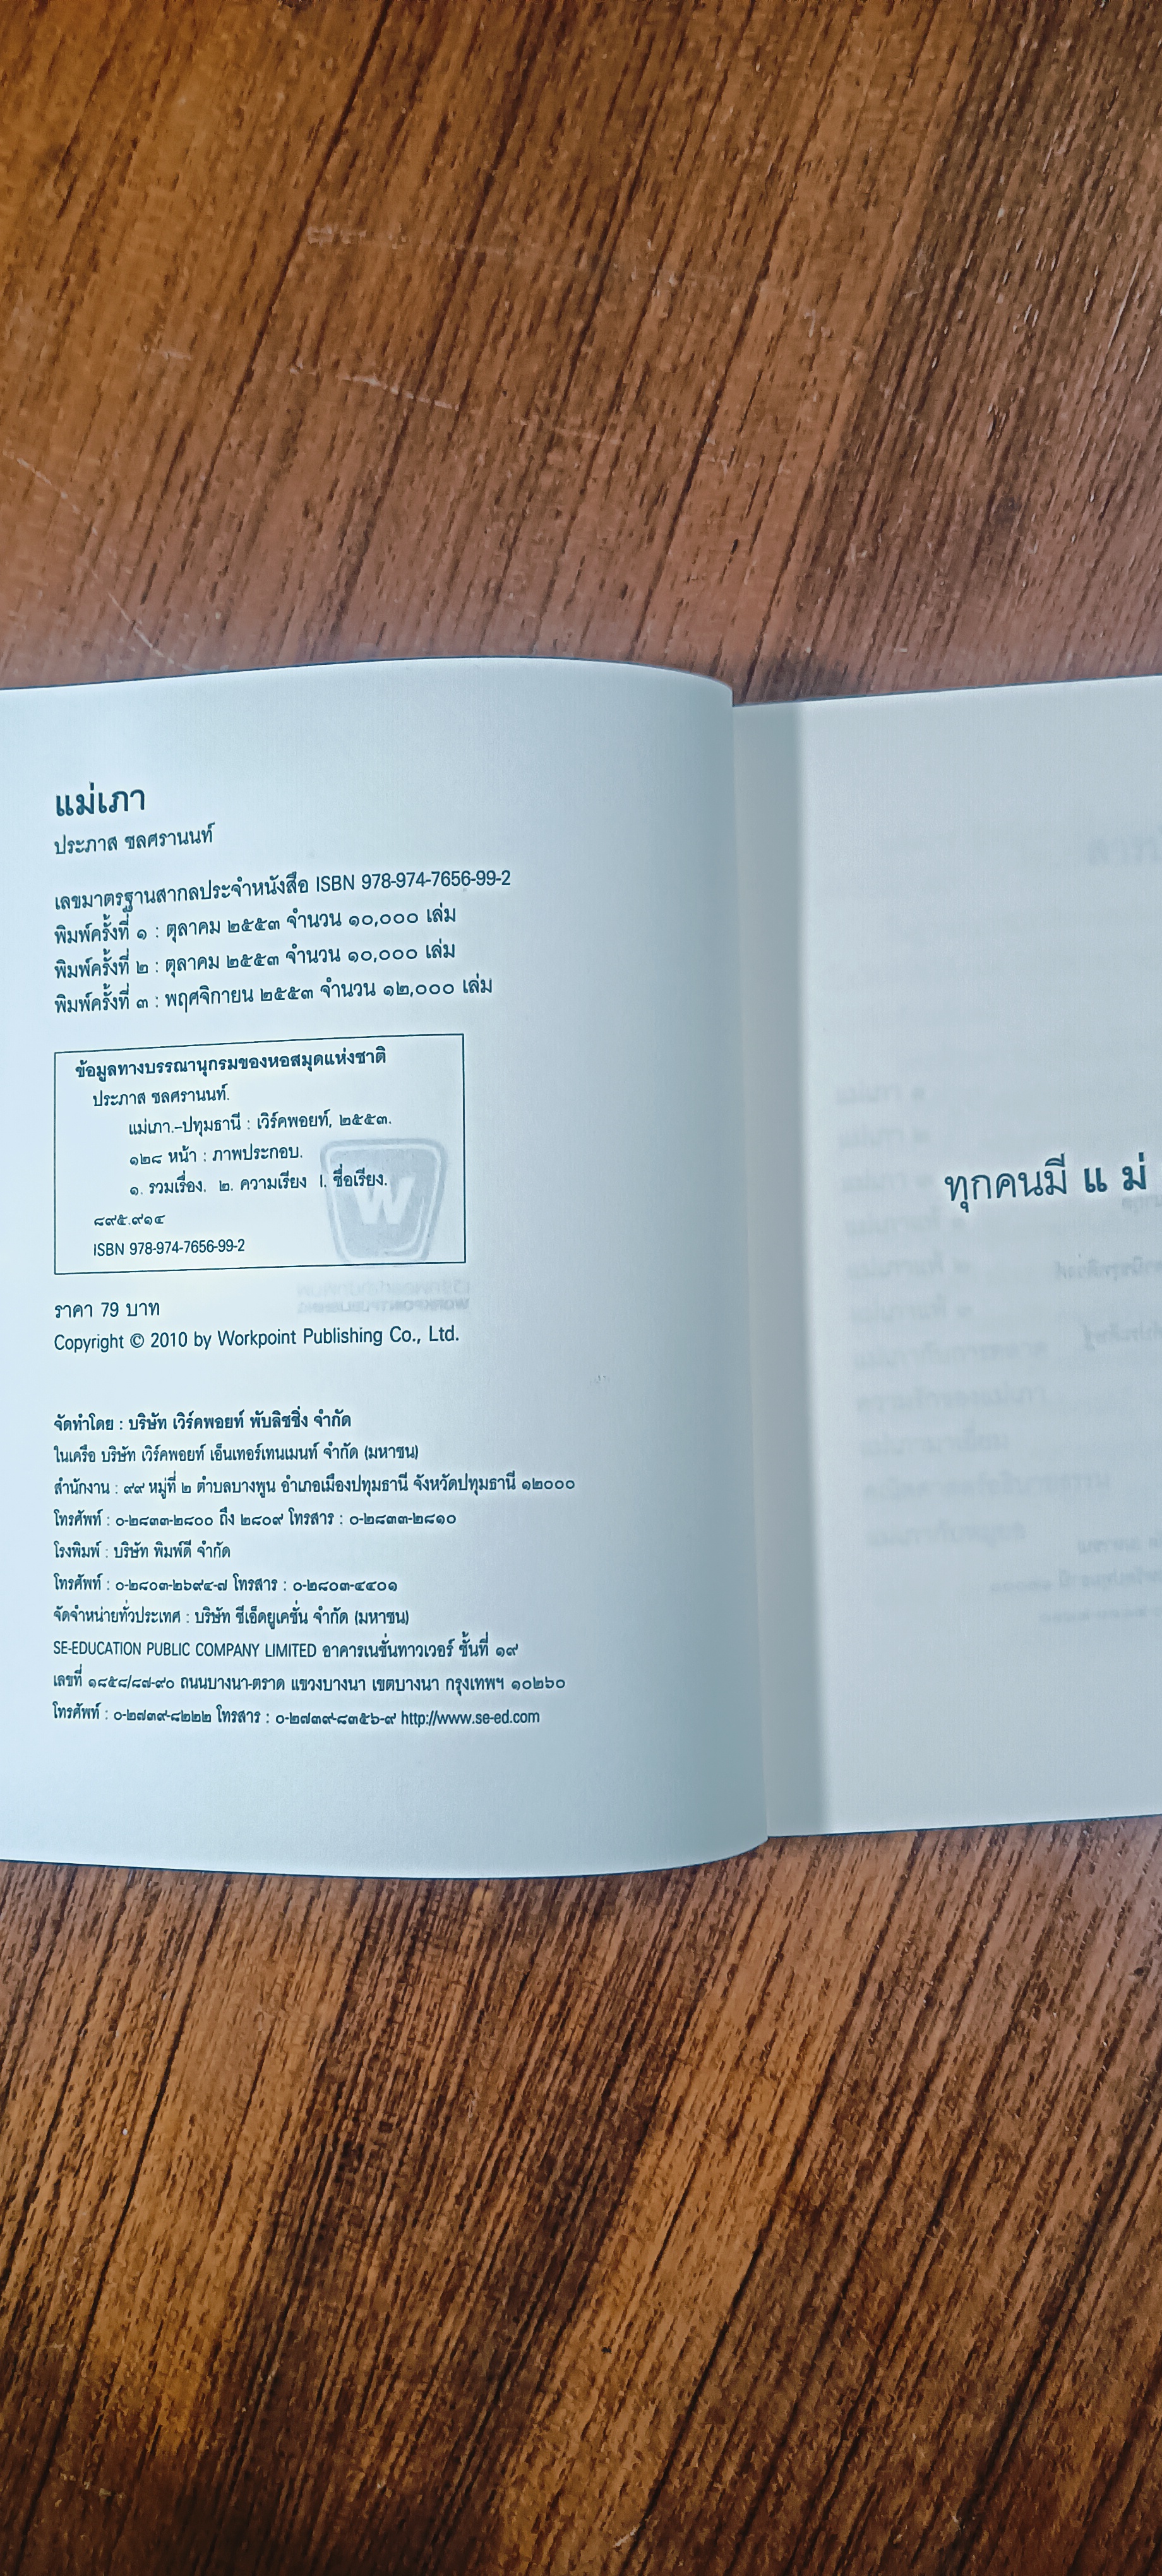 แม่เภา
ประภาส ชลศรานนท์
เลขมาตรฐานสากลประจำหนังสือ ISBN 978-974-7656-99-2
พิมพ์ครั้งที่ ๑ : ตุลาคม ๒๕๕๓ จำนวน ๑๐,๐๐๐ เล่ม
พิมพ์ครั้งที่ ๒ : ตุลาคม ๒๕๕๓ จำนวน ๑๐,๐๐๐ เล่ม
พิมพ์ครั้งที่ ๓ : พฤศจิกายน ๒๕๕๓ จำนวน ๑๒,๐๐๐ เล่ม
ข้อมูลทางบรรณานุกรมของหอสมุดแห่งชาติ
ประภาส ชลศรานนท์.
แม่เภา.--ปทุมธานี : เวิร์คพอยท์, ๒๕๕๓.
๑๒๘ หน้า : ภาพประกอบ.
๑. รวมเรื่อง. ๒. ความเรียง I. ชื่อเรียง.
๘๙๕.๙๑๔
ISBN 978-974-7656-99-2
ราคา 79 บาท
Copyright © 2010 by Workpoint Publishing Co., Ltd.
จัดทำโดย : บริษัท เวิร์คพอยท์ พับลิชชิ่ง จำกัด
ในเครือ บริษัท เวิร์คพอยท์ เอ็นเทอร์เทนเมนท์ จำกัด (มหาชน)
สำนักงาน : ๙๙ หมู่ที่ ๒ ตำบลบางพูน อำเภอเมืองปทุมธานี จังหวัดปทุมธานี ๑๒๐๐๐
โทรศัพท์ : ๐-๒๘๓๓-๒๘๐๐ ถึง ๒๘๐๙ โทรสาร : ๐-๒๘๓๓-๒๘๑๐
โรงพิมพ์ : บริษัท พิมพ์ดี จำกัด
โทรศัพท์ : ๐-๒๘๐๓-๒๖๙๔-๗ โทรสาร : ๐-๒๘๐๓-๔๔๐๑
จัดจำหน่ายทั่วประเทศ : บริษัท ซีเอ็ดยูเคชั่น จำกัด (มหาชน)
SE-EDUCATION PUBLIC COMPANY LIMITED อาคารเนชั่นทาวเวอร์ ชั้นที่ ๑๙
เลขที่ ๑๘๕๘/๘๗-๙๐ ถนนบางนา-ตราด แขวงบางนา เขตบางนา กรุงเทพฯ ๑๐๒๖๐
โทรศัพท์ : ๐-๒๗๓๙-๘๒๒๒ โทรสาร : ๐-๒๗๓๙-๘๓๕๖-๙ http://www.se-ed.com
ทุกคนมี แ ม่